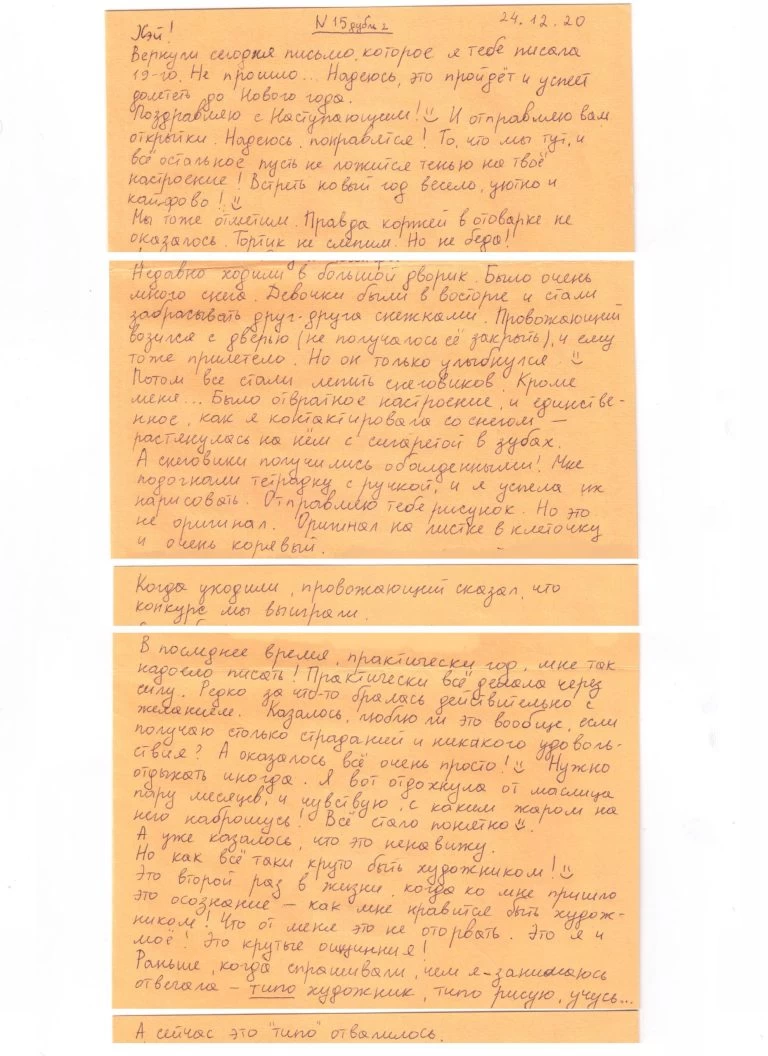 Кэй!
N 15 дубль 2
24.12.20
Вернули сегодня письмо, которое я тебе писала
19-го. Не прошло... Надеюсь, это пройдёт и успеет
долететь до Нового года.
Поздравляю с Наступающим! И отправляю вам
открытки. Надеюсь, понравятся! То, что мы тут, и
всё остальное пусть не ложится тенью на твоё
настроение! Встреть новый год весело, уютно и
кайфово!
Мы тоже отметим. Правда коржей в отоварке не
оказалось. Тортик не слепим. Но не беда!
Недавно ходили в большой дворик. Было очень
много снега. Девочки были в восторге и стали
забрасывать друг-друга снежками. Провожающий
возился с дверью (не получалось её закрыть), и ему
тоже прилетело. Но он только улыбнулся.
Потом все стали лепить снеговиков. Кроме
меня... Было отвратное настроение, и единстве-
нное, как я контактировала со снегом —
растянулась на нём с сигаретой в зубах.
А снеговики получились обалденными! Мне
подогнали тетрадку с ручкой, и я успела их
нарисовать. Отправляю тебе рисунок. Но это
не оригинал. Оригинал на листке в клеточку
и очень корявый.
Когда уходили, провожающий сказал, что
конкурс мы выиграли.
В последнее время, практически год, мне так
надоело писать! Практически всё делала через
силу. Редко за что-то бралась действительно с
желанием. Казалось, люблю ли это вообще, если
получаю столько страданий и никакого удоволь-
ствия? А оказалось всё очень просто! Нужно
отдыхать иногда. Я вот отдохнула от маслица
пару месяцев, и чувствую, с каким жаром на
него наброшусь! Всё стало понятно.
А уже казалось, что это ненавижу.
Но как всё таки круто быть художником!
Это второй раз в жизни, когда ко мне пришло
это осознание — как мне нравится быть худож-
ником! Что от меня это не оторвать. Это я и
моё! Это крутые ощущения!
Раньше, когда спрашивали, чем я занимаюсь
отвечала – типо художник, типо рисую, учусь...
А сейчас это "типо" отвалилось.